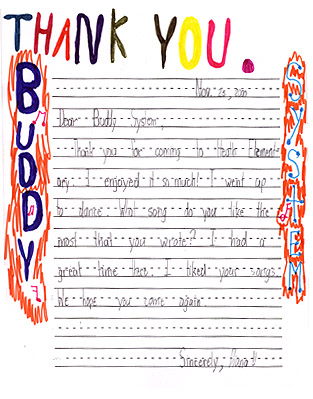 THANK YOU.
BUDDY
SYSTEM
Nov. 28, 2001
Dear Buddy System,
Thank you for coming to Heath Element-
ary. I enjoyed it so much! I went up
to dance. What song do you like the
most that you wrote? I had a
great time there. I liked your songs.
We hope you come again.
Sincerely,